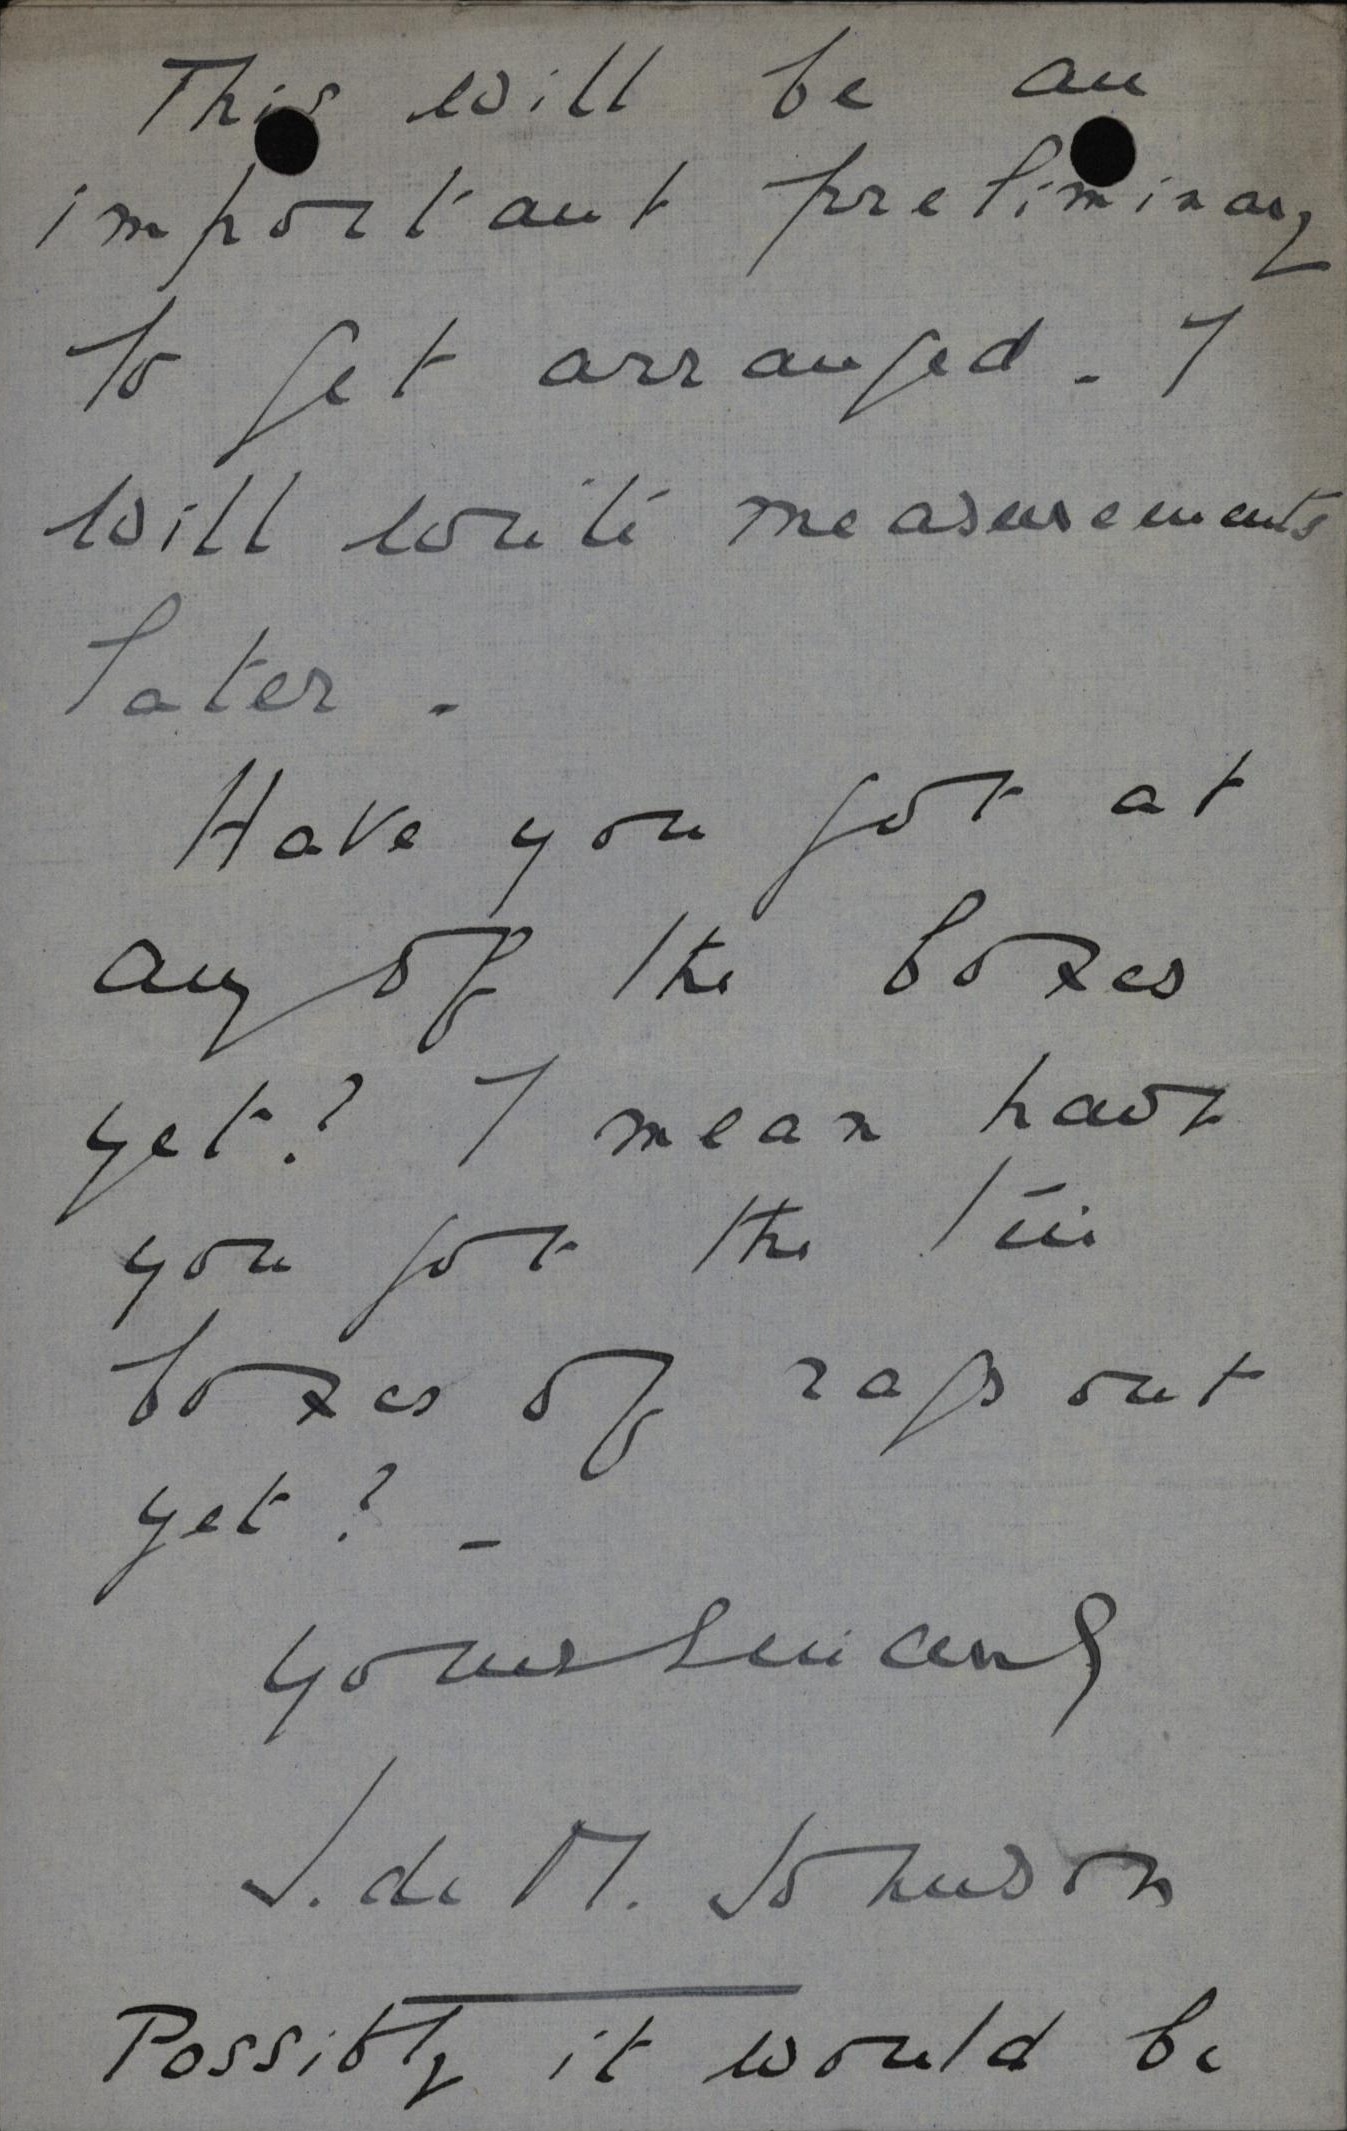 This will be an
important preliminary
to get arranged. I
will write measurements
later.
Have you got at
any of the boxes
yet? I mean have
you got the tin
boxes of rags out
yet? -
yours sincerely
J. de M. Johnson
Possibly it would be